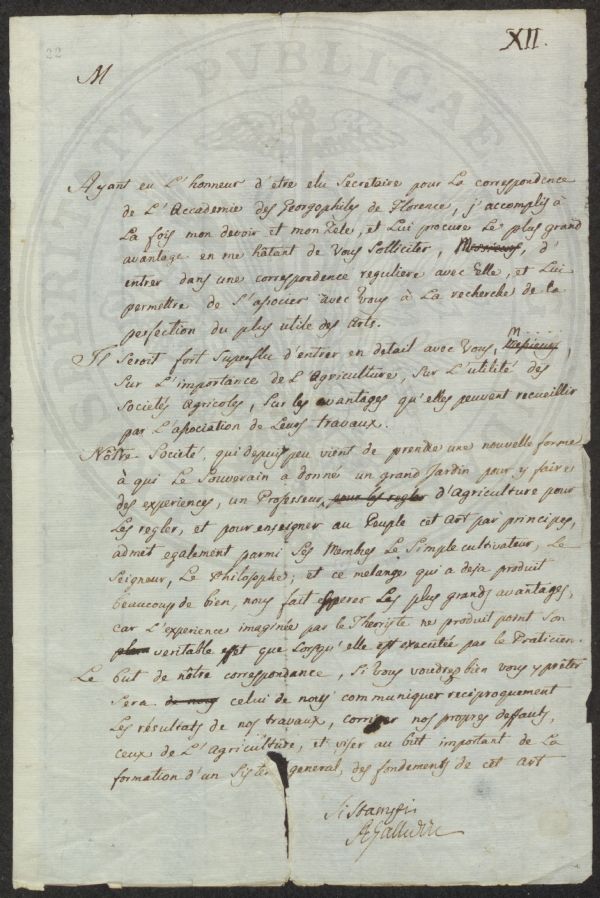 22
XII.
M
Ayant eu L'honneur d'etre elu Secretaire pour La correspondence
de L'Accademie des Georgophiles de Florence, j'accomplis à
La fois mon devoir et mon Zèle, et Lui procure Le plus grand
avantage en me hâtant de Vous Solliciter, Messieurs, d'
entrer dans une correspondence reguliere avec Elle, et Lui
permettre de S'associer avec Vous à La recherche de La
perfection du plus utile des Arts.
M....
Il Seroit fort Superflu d'entrer en detail avec Vous, Messieurs,
Sur L'importance de L'Agriculture, Sur L'utilité des
Societés Agricoles, Sur les avantages qu'elles peuvent recueillir
par L'association de Leurs travaux.
Nôtre Societé, qui depuis peu vient de prendre une nouvelle forme
à qui Le Souverain a donné un grand Jardin pour y faire
des experiences, un Professeur, pour les regler d'Agriculture pour
Les regler, et pour enseigner au Peuple cet Art par principes,
admet egalement parmi Ses Membres Le Simple cultivateur, Le
Seigneur, Le Philosophe; et ce melange qui a deja produit
beaucoup de bien, nous fait esperer Les plus grands avantages,
car L'experience imaginée par le Theoriste ne produit point Son
plein veritable effet que Lorsqu'elle est executée par le Praticien.
Le but de nôtre correspondance, Si Vous voudrez bien vous y prêter
Sera de nous celui de nous communiquer reciproquement
Les résultats de nos travaux, corriger nos propres deffauts,
ceux de L'Agriculture, et viser au but important de La
formation d'un Sistem general, des fondements de cet Art
Si Stampi
PUBLICAE